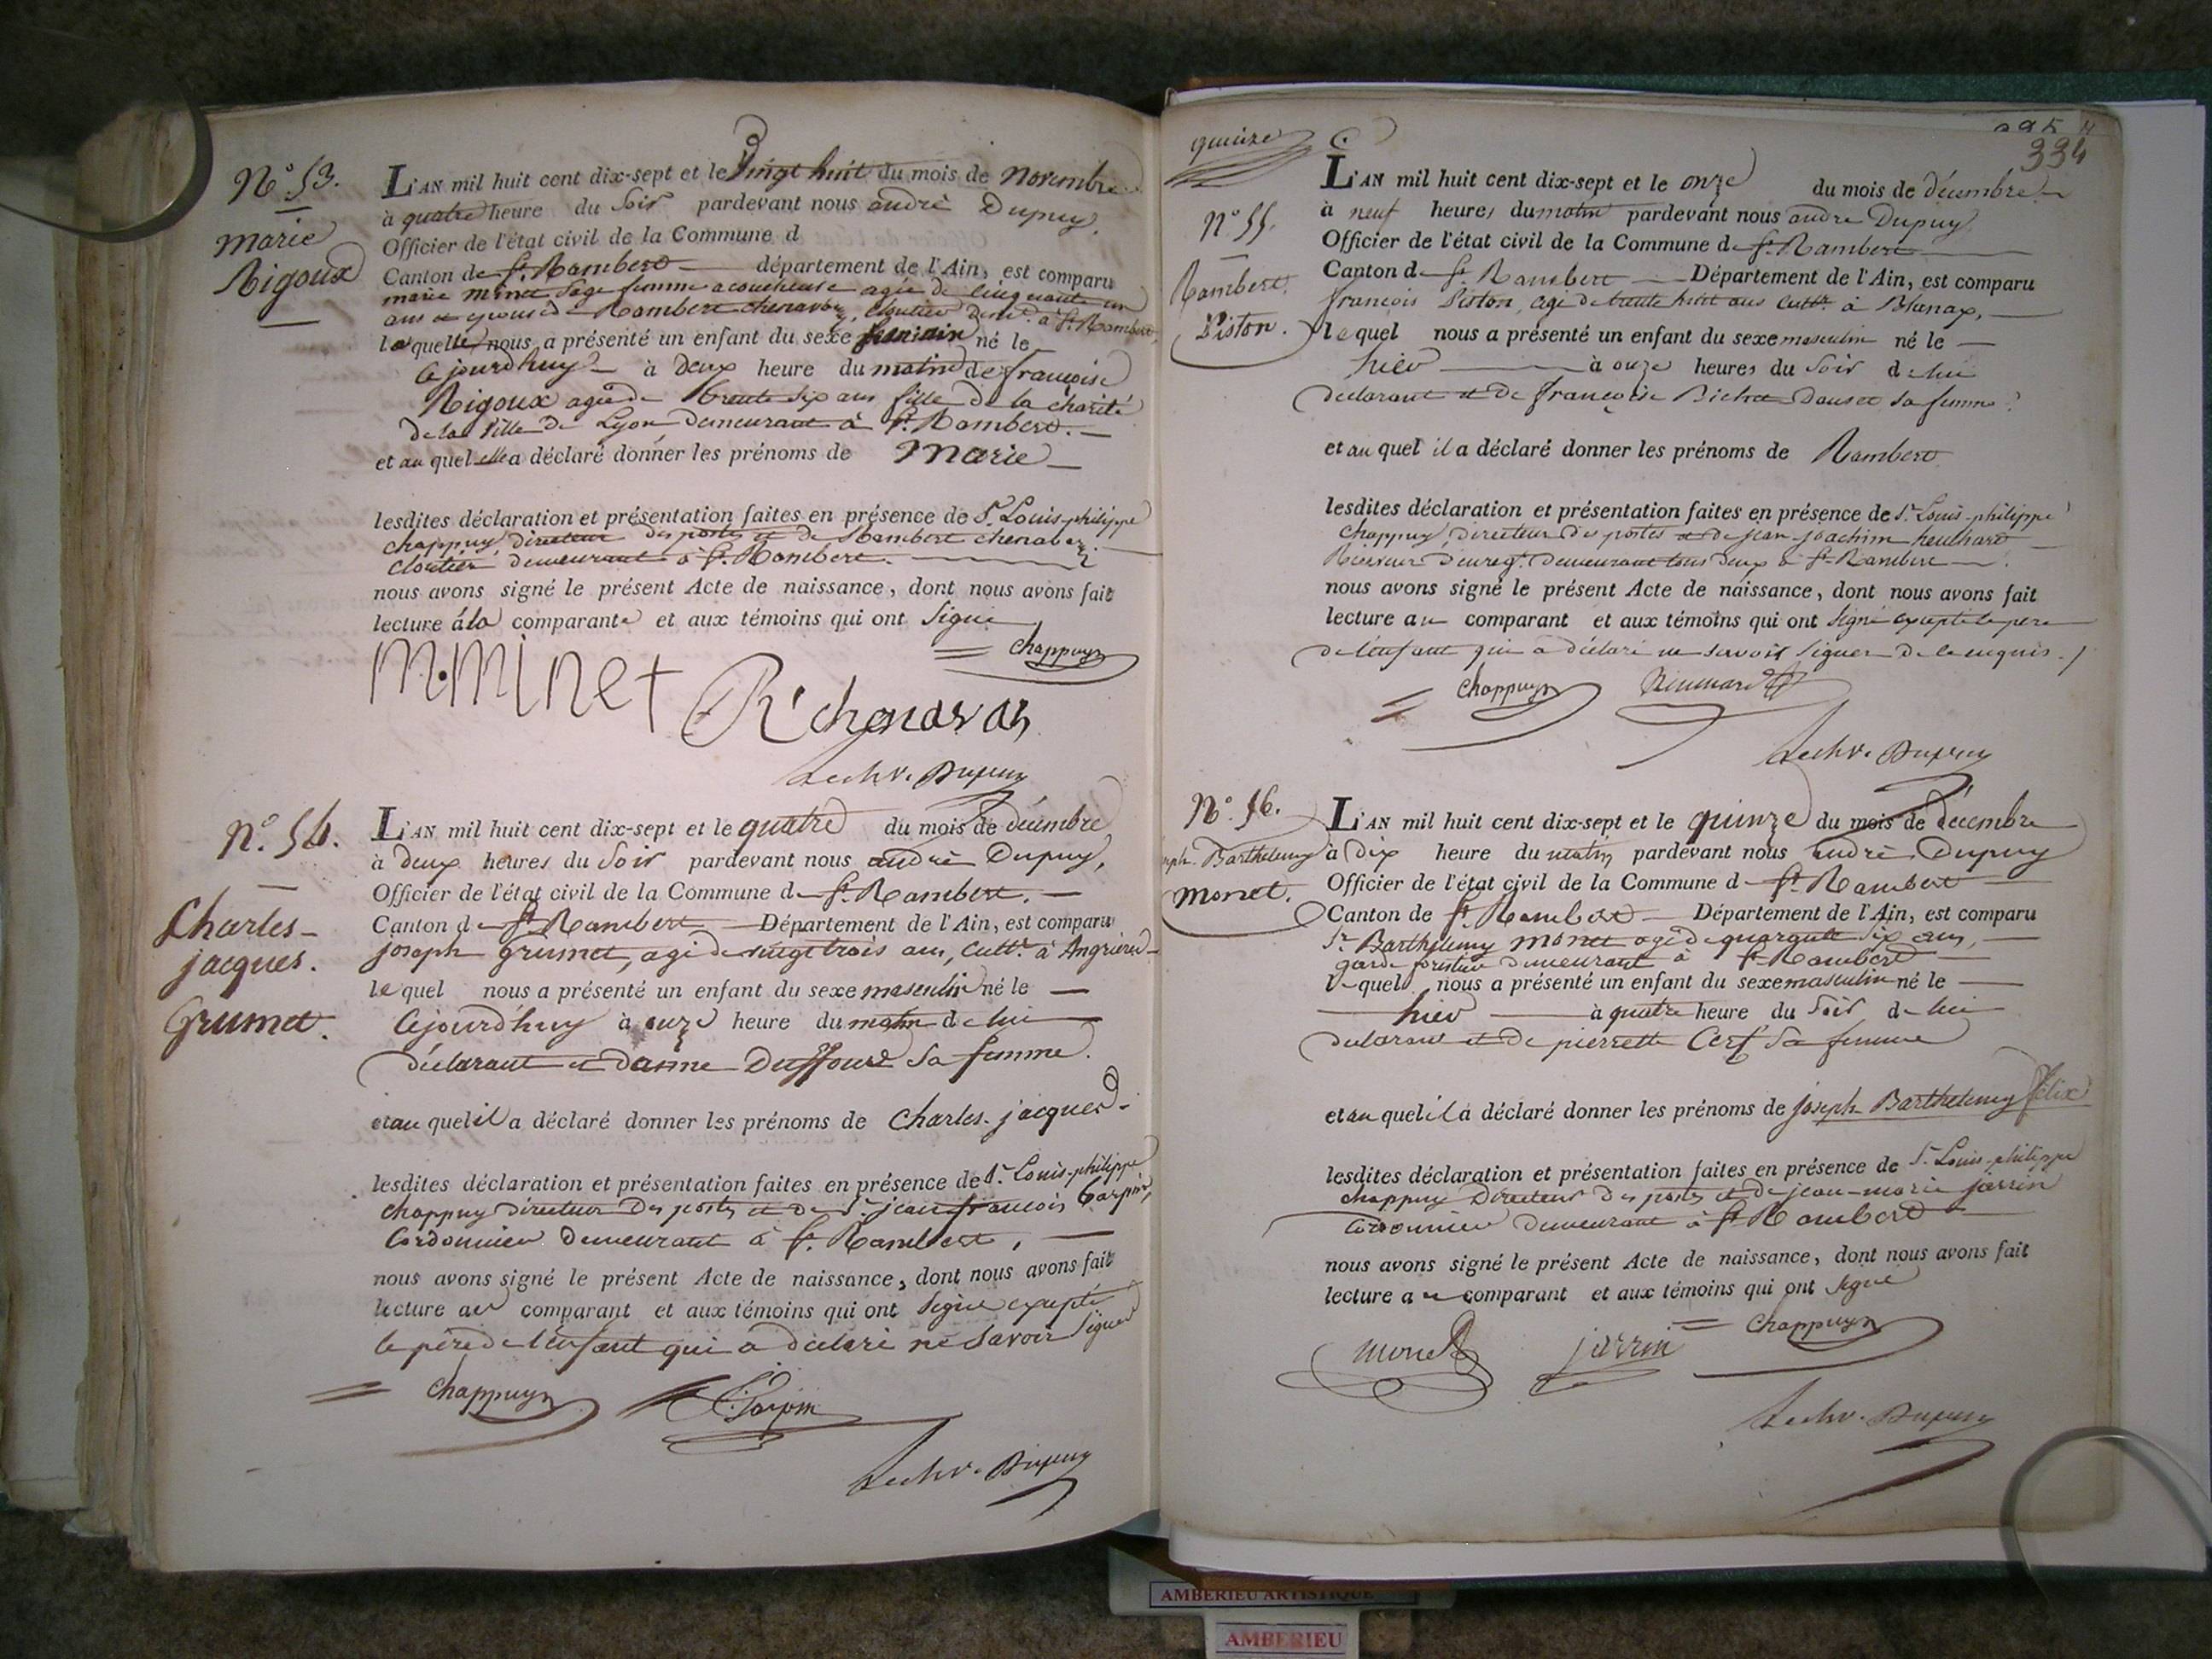 N.o 53.
Marie
Rigoux
L'AN mil huit cent dix-sept et le vingt huit du mois de novembre
à quatre heure du Soir pardevant nous andré Dupuy,
Officier de l'état civil de la Commune d
Canton de St. Rambert département de l'Ain, est comparu
marie minet Sage femme acoucheuse agée de cinquante un
ans et epouse de Rambert chenavaz, cloutier dem.t à St. Rambert
laquelle nous a présenté un enfant du sexe feminin né le
cejourd'huy à deux heure du matin de françoise
Rigoux agée de trente six ans fille de la charité
de la Ville de Lyon demeurant à St. Rambert.
et au quel elle a déclaré donner les prénoms de Marie
lesdites déclaration et présentation faites en présence de Sr. Louis-philippe
chappuy directeur des postes et de Rambert chenavaz
cloutier demeurant à St. Rambert.
nous avons signé le présent Acte de naissance, dont nous avons fait
lecture à la comparante et aux témoins qui ont Signé
chappuy
m. minet R chenavas
Dupuy
N.o 54.
Charles-
jacques.
Grumet.
L'AN mil huit cent dix-sept et le quatre du mois de décembre
à deux heures du Soir pardevant nous andré Dupuy,
Officier de l'état civil de la Commune de St. Rambert.
Canton de St. Rambert Département de l'Ain, est comparu
joseph Grumet, agé de vingt trois ans, cultr. à Angrieres
lequel nous a présenté un enfant du sexe masculin né le
Cejourd'huy à onze heure du matin de lui
déclarant et danne Duffour Sa femme.
et au quel il a déclaré donner les prénoms de Charles-jacques.
lesdites déclaration et présentation faites en présence de Sr. Louis-philippe
chappuy directeur des postes et de Sr. jean françois Carpin,
Cordonnier demeurant à St. Rambert,
nous avons signé le présent Acte de naissance, dont nous avons fait
lecture au comparant et aux témoins qui ont Signé excepté
le père de l'enfant qui a déclaré ne Savoir Signer
chappuy Carpin
Dupuy
quinze
334
N.o 55.
Rambert
Piston.
L'AN mil huit cent dix-sept et le onze du mois de décembre
à neuf heures du matin pardevant nous andré Dupuy
Officier de l'état civil de la Commune de St. Rambert
Canton de St. Rambert Département de l'Ain, est comparu
françois Piston, agé de trente huit ans cultr. à Blanaz,
lequel nous a présenté un enfant du sexe masculin né le
hier à onze heures du Soir de lui
déclarant et de françoise sa femme
et au quel il a déclaré donner les prénoms de Rambert
lesdites déclaration et présentation faites en présence de Sr. Louis-philippe
chappuy, directeur des postes et de jean-joachim
Receveur d'enregt. demeurant tous deux à St. Rambert
nous avons signé le présent Acte de naissance, dont nous avons fait
lecture au comparant et aux témoins qui ont Signé excepté le père
de l'enfant qui a déclaré ne savoir Signer de ce enquis.
chappuy
Dupuy
N.o 56.
Barthelemy
monet.
L'AN mil huit cent dix-sept et le quinze du mois de décembre
à dix heure du matin pardevant nous André Dupuy
Officier de l'état civil de la Commune de St. Rambert
Canton de St. Rambert Département de l'Ain, est comparu
Sr. Barthelemy monet agé de quarante six ans,
garde forestier demeurant à St. Rambert
lequel nous a présenté un enfant du sexe masculin né le
hier à quatre heure du Soir de lui
déclarant et de pierrette Cerf Sa femme
et au quel il a déclaré donner les prénoms de joseph Barthelemy félix
lesdites déclaration et présentation faites en présence de Sr. Louis-philippe
chappuy Directeur des postes et de jean-marie jarrin
Cordonnier demeurant à St. Rambert
nous avons signé le présent Acte de naissance, dont nous avons fait
lecture au comparant et aux témoins qui ont signé
monet jarrin chappuy
Dupuy
AMBERIEU ARTISTIQUE
AMBERIEU